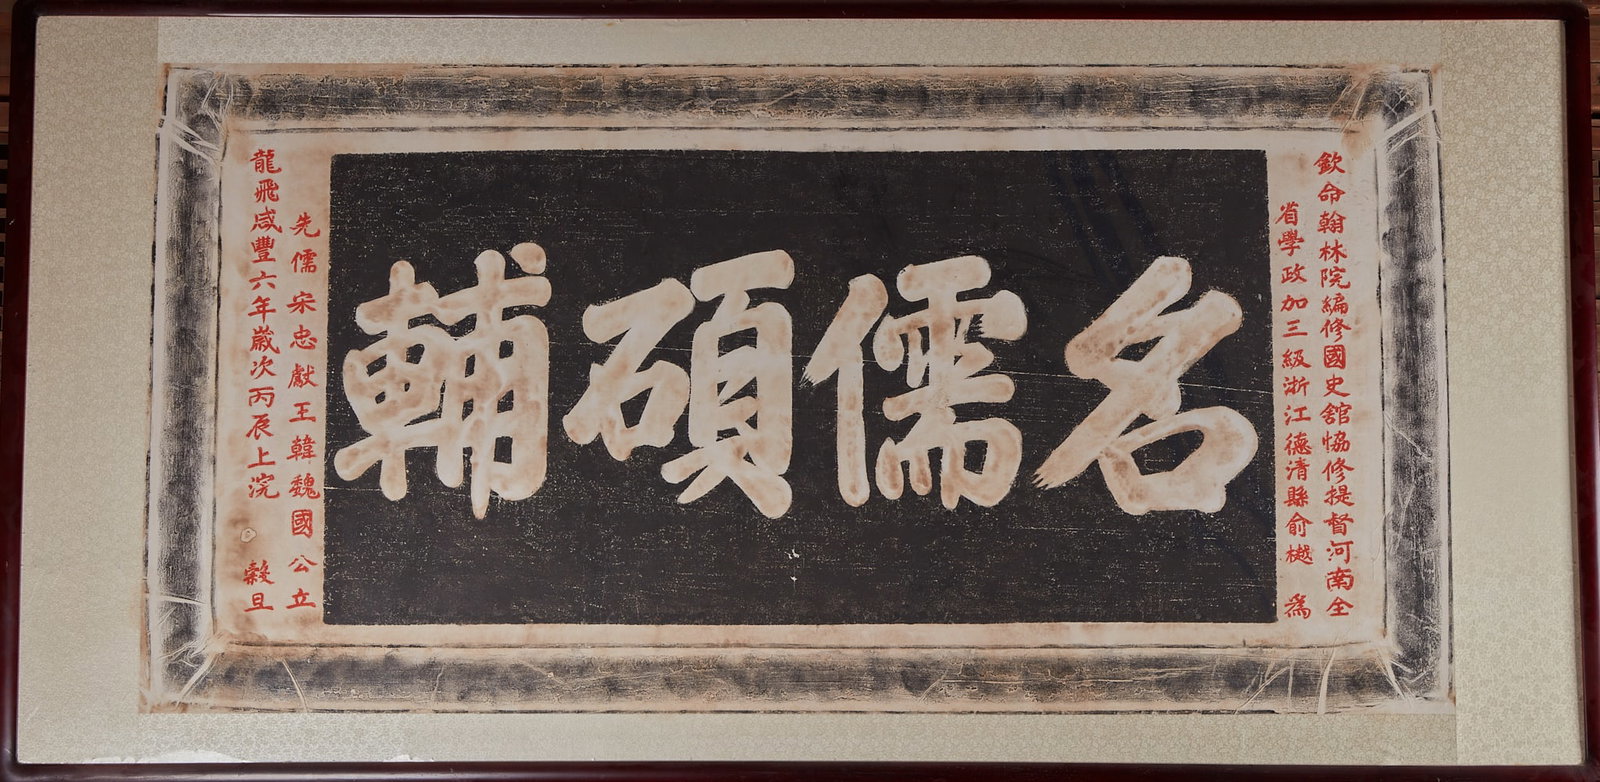 欽命翰林院編修國史舘協修提督河南全
省學政加三級浙江德清縣俞樾 爲
名儒碩輔
先儒宋忠獻王韓魏國公立
龍飛咸豐六年歲次丙辰上浣 穀旦